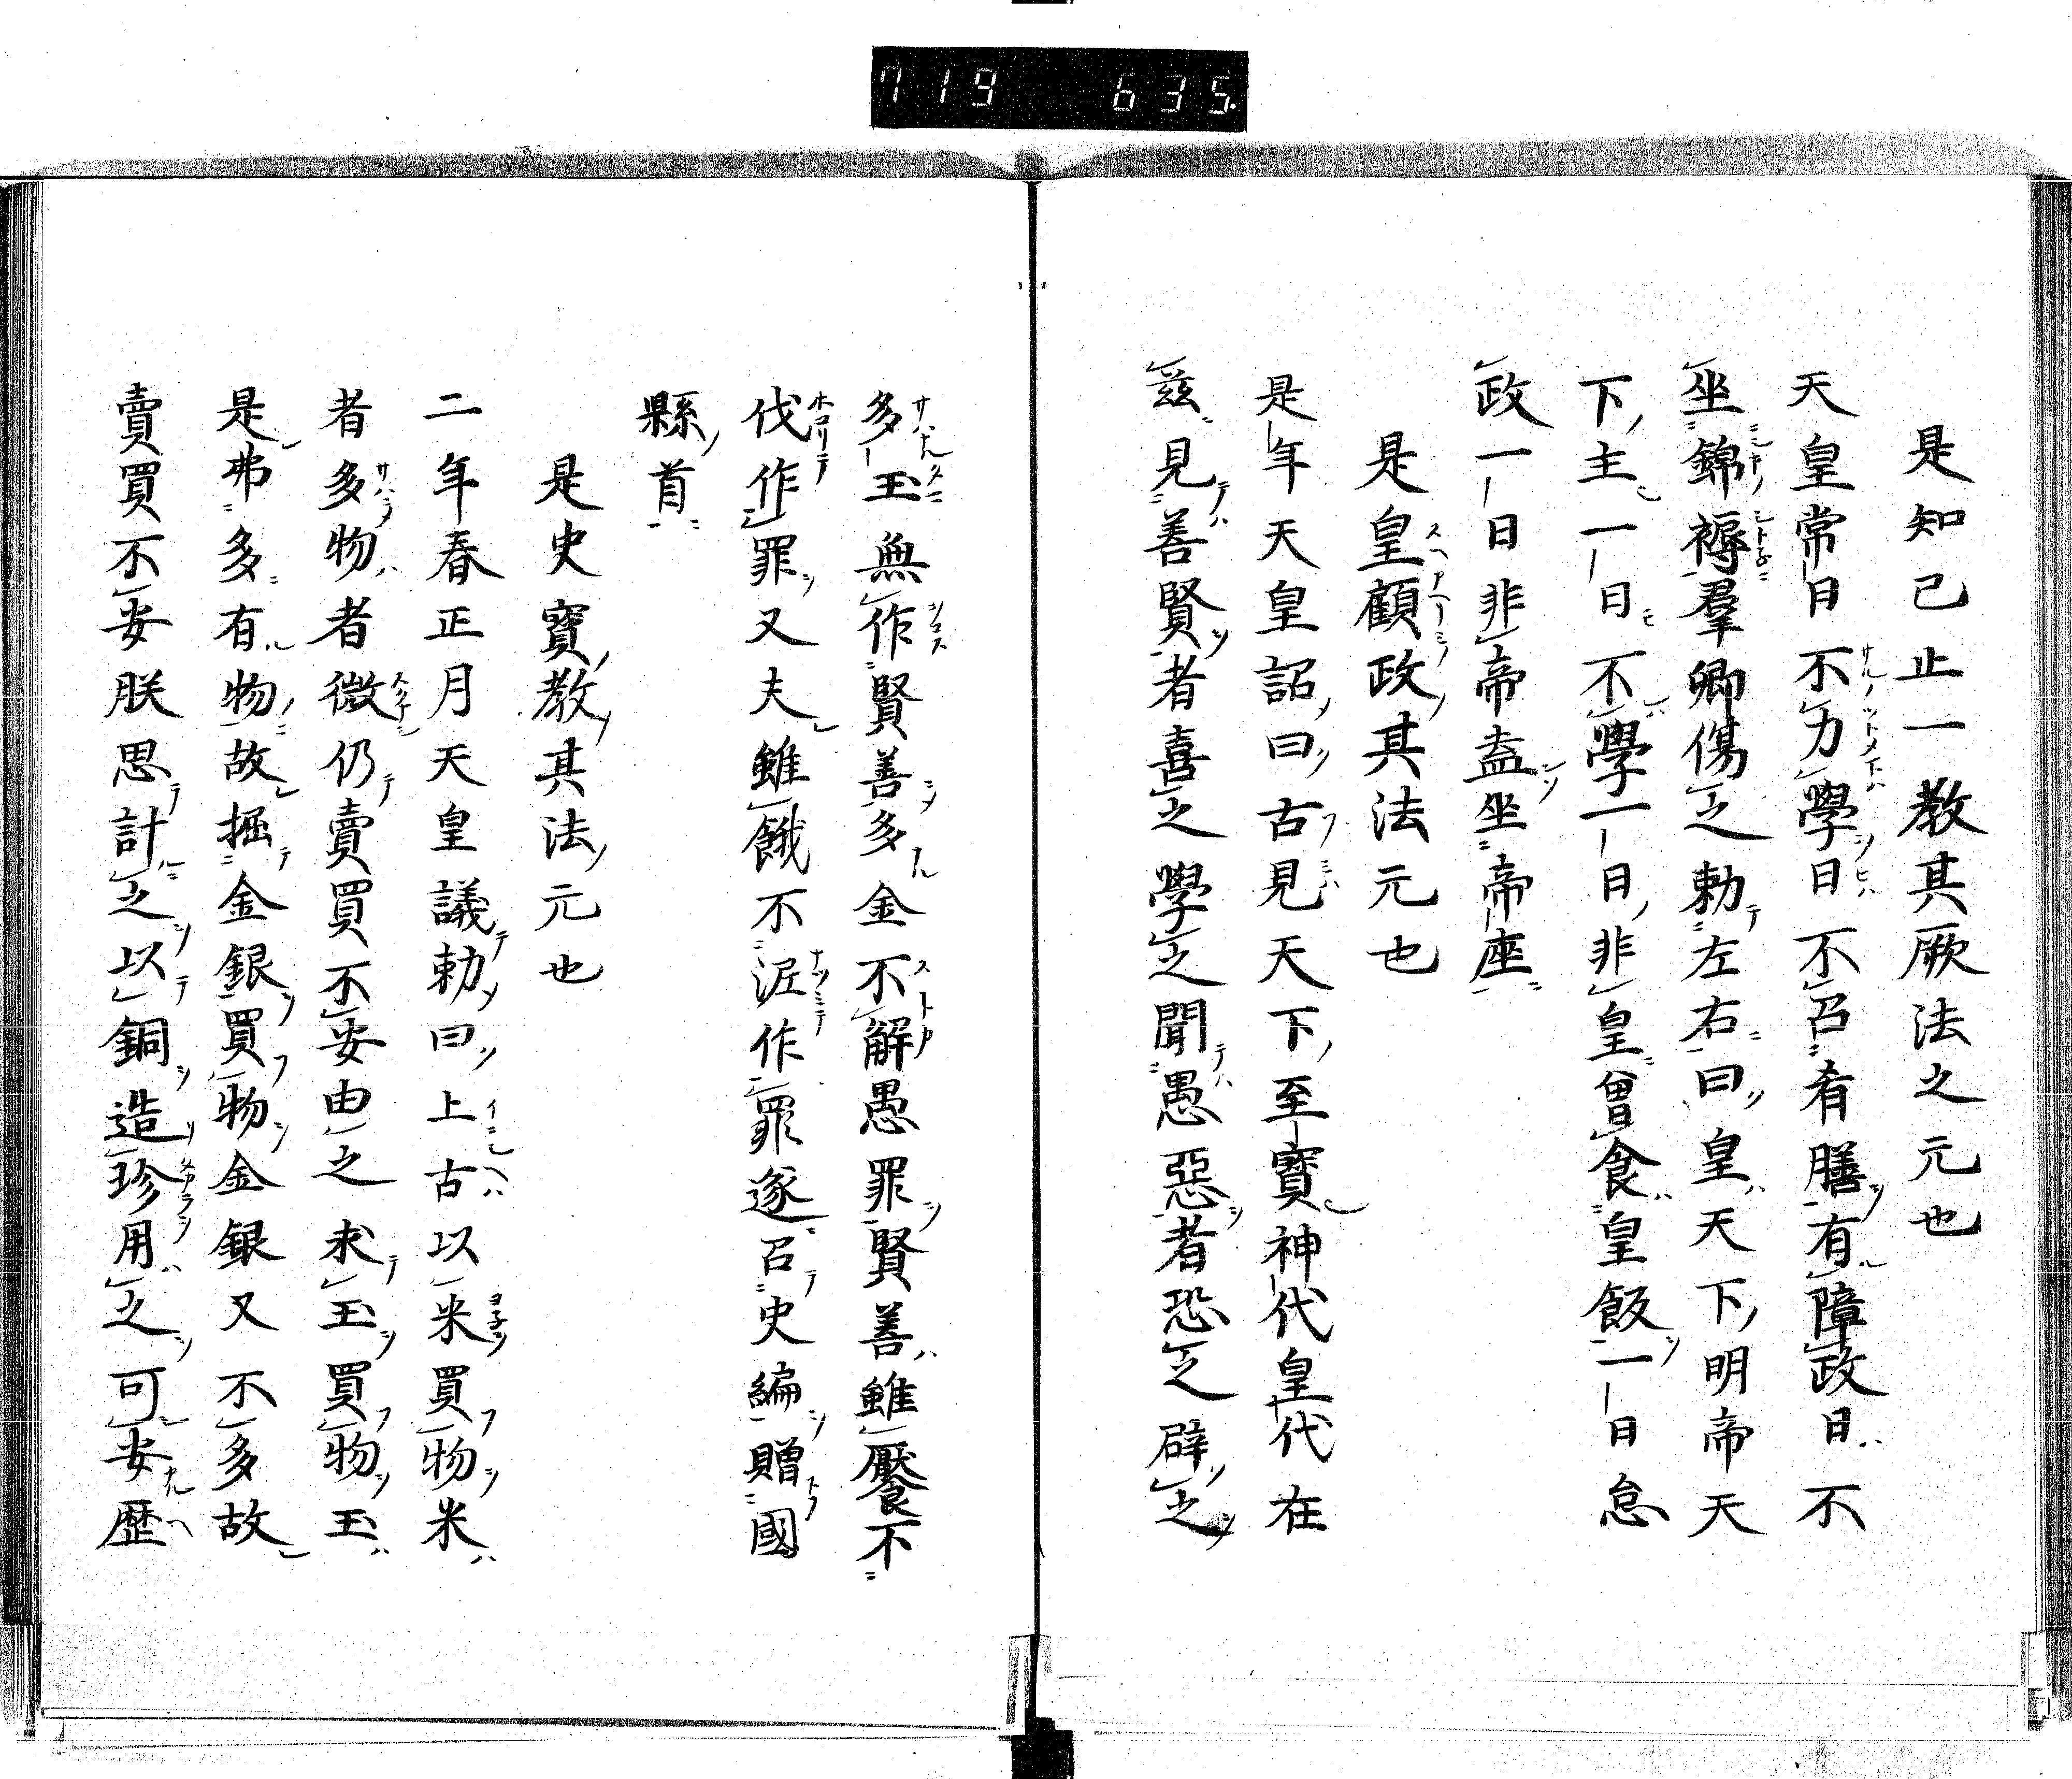 719 635.
是知己止一教其厥法之元也
天皇常日不力學日不召肴膳有障政日不
坐錦褥羣卿傷之勅左右曰皇天下明帝天
下主一日不學一日非皇曾食皇飯一日怠
政一日非帝盍坐帝座
是皇顧政其法元也
是年天皇詔曰古見天下至寶神代皇代在
茲見善賢者喜之學之聞愚惡者恐之辟之
多玉無作賢善多金不解愚罪賢善雖饜不
伐作罪又夫雖餓不泥作罪遂召史編贈國
縣首
是史寶教其法元也
二年春正月天皇議勅曰上古以米買物米
者多物者微仍賣買不安由之求玉買物玉
是弗多有物故掘金銀買物金銀又不多故
賣買不安朕思計之以銅造珍用之可安歴